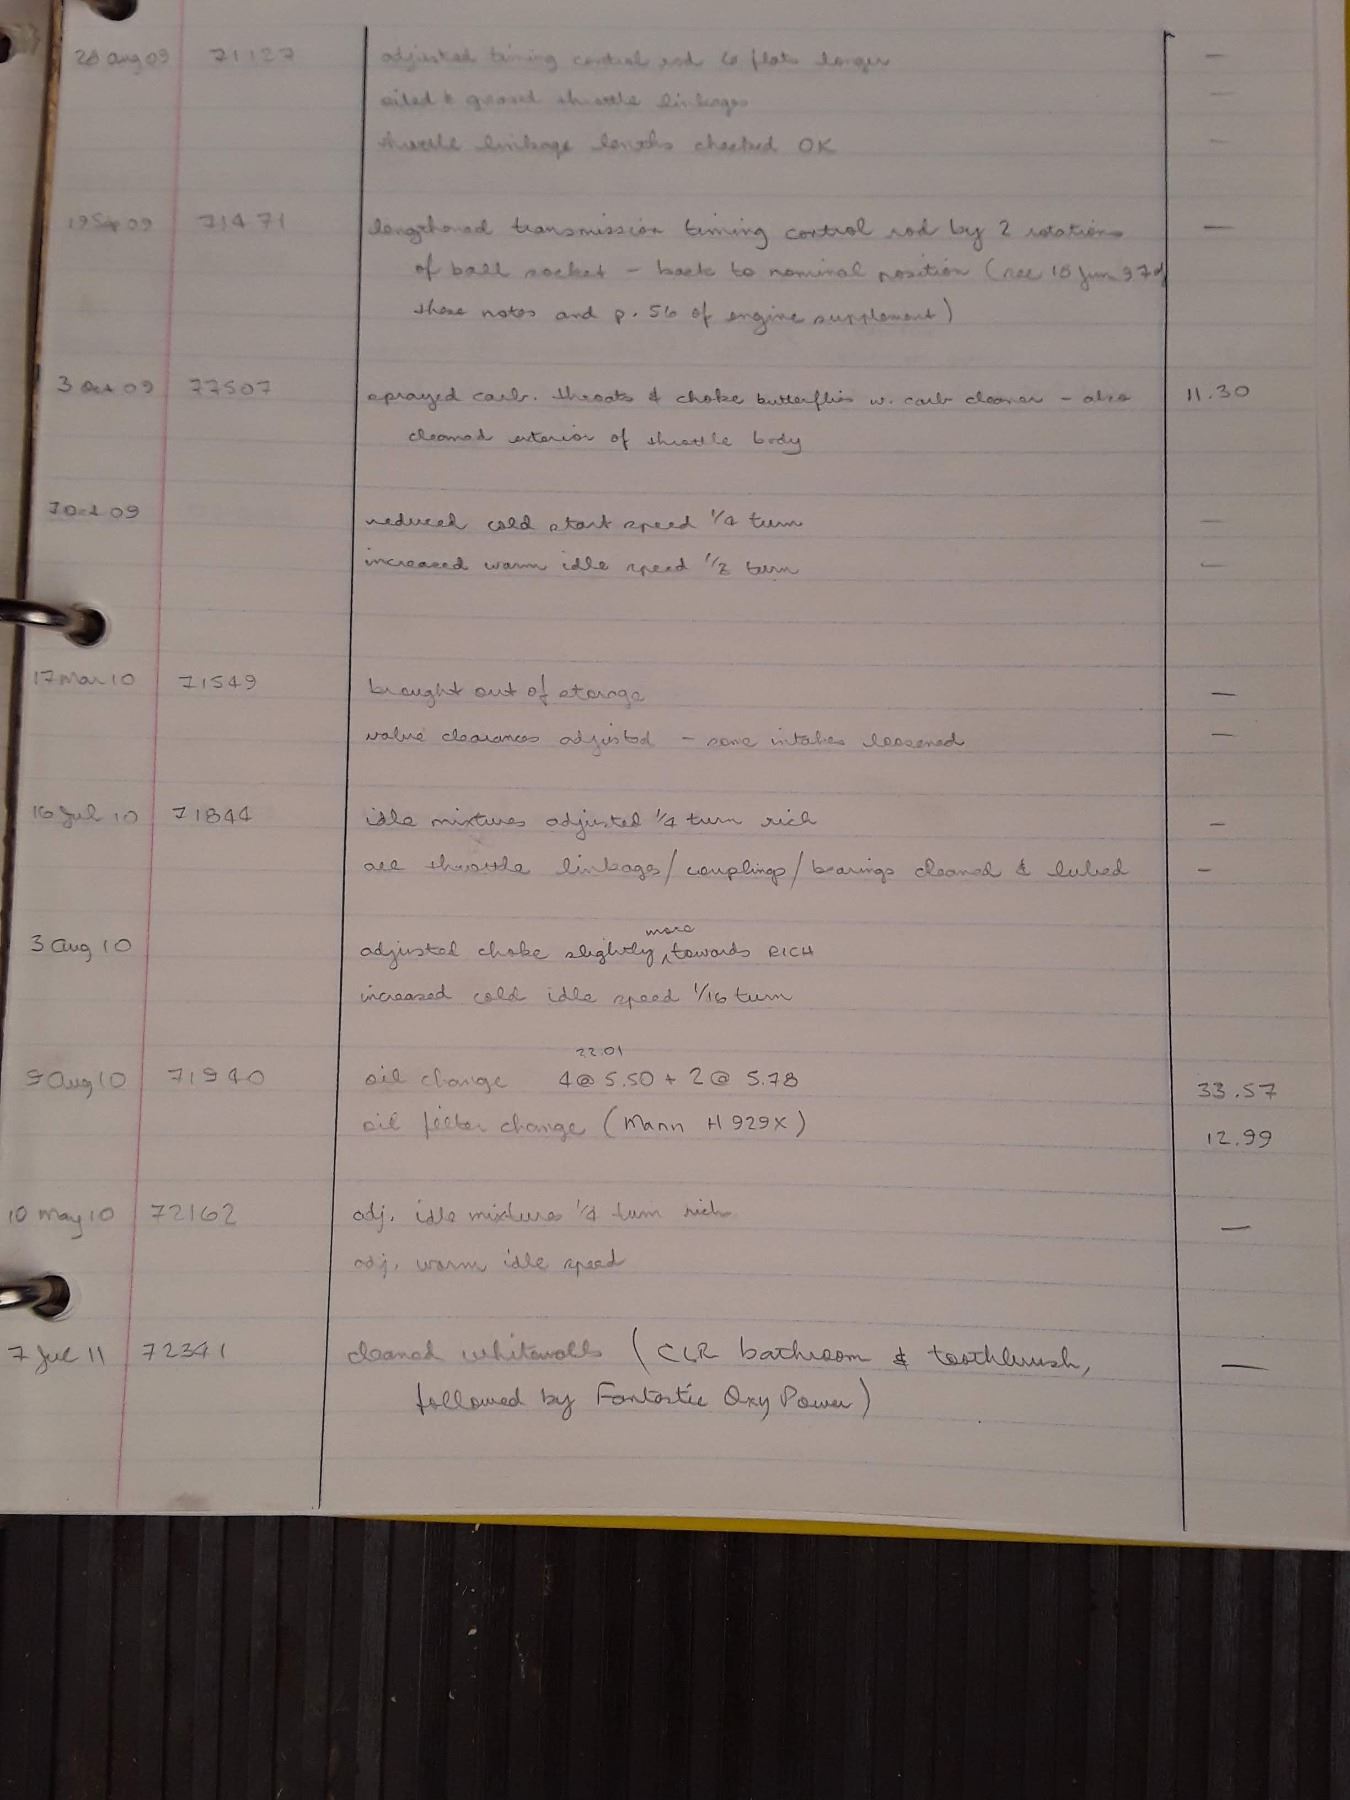 28 Aug 09 71127 adjusted timing control rod 6 flats longer —
oiled & greased throttle linkages —
throttle linkage lengths checked OK —
19 Sep 09 71471 lengthened transmission timing control rod by 2 rotations —
of ball socket – back to nominal position (see 18 Jun 97 of
these notes and p. 56 of engine supplement)
3 Oct 09 77507 sprayed carb. throats & choke butterflies w. carb cleaner – also 11.30
cleaned exterior of throttle body
7 Oct 09 reduced cold start speed 1/4 turn —
increased warm idle speed 1/2 turn —
17 Mar 10 71549 brought out of storage —
valve clearances adjusted – some intakes loosened —
16 Jul 10 71844 idle mixtures adjusted 1/4 turn rich —
all throttle linkages/couplings/bearings cleaned & lubed —
3 Aug 10 adjusted choke slightly more towards RICH
increased cold idle speed 1/16 turn
22.01
9 Aug 10 71940 oil change 4 @ 5.50 + 2 @ 5.78 33.57
oil filter change (Mann H 929X) 12.99
10 May 10 72162 adj. idle mixtures 1/4 turn rich —
adj. warm idle speed
7 Jul 11 72341 cleaned whitewalls (CLR bathroom & toothbrush, —
followed by Fantastic Oxy Power)